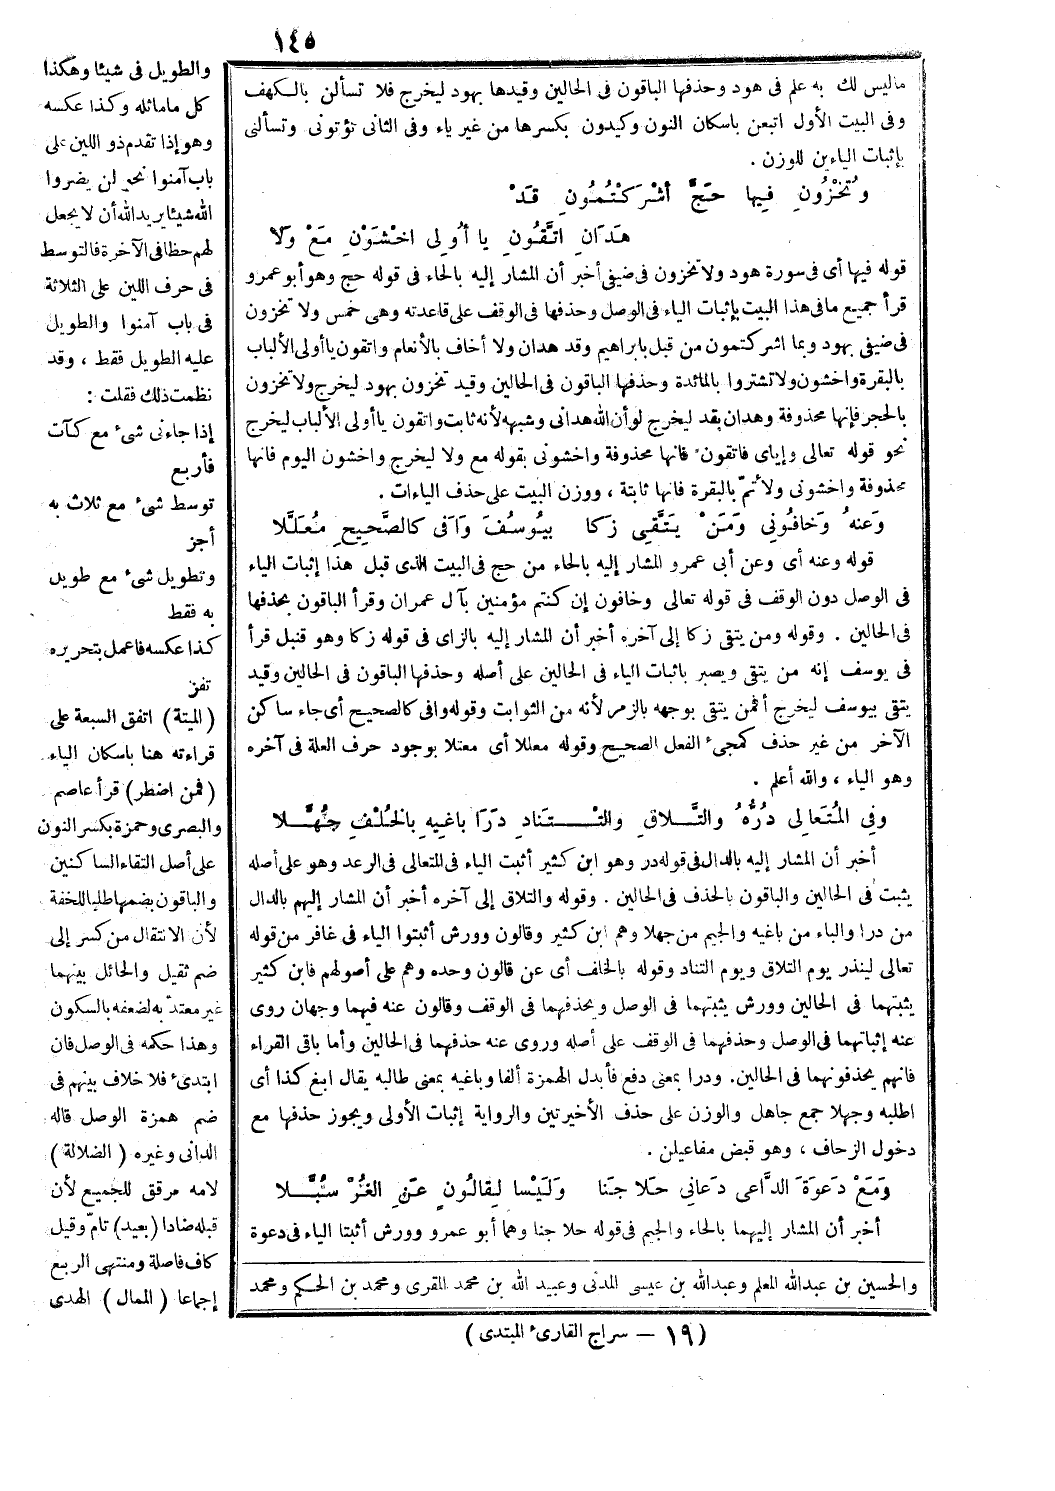 ١٤٥
ماليس لك به علم فى هود وحذفها الباقون فى الحالين وقيدها بهود ليخرج فلا تسألن بالكهف
وفى البيت الأول اتبعن باسكان النون وكيدون بكسرها من غير ياء وفى الثانى تؤتونى وتسألنى
بإثبات الياءين للوزن .
وَتُخْزُونِ فِيها حَجَّ أشْرَكْتُمُونِ قَدْ
هَدَانِ اتَّقُونِ يا أُولِى اخْشَوْنِ مَعْ وَلَا
قوله فيها أى فى سورة هود ولا تخزون فى ضيفى أخبر أن المشار إليه بالحاء فى قوله حج وهو أبو عمرو
قرأ جميع ما فى هذا البيت بإثبات الياء فى الوصل وحذفها فى الوقف على قاعدته وهى خمس ولا تخزون
فى ضيفى بهود وبما اشركتمون من قبل بابراهيم وقد هدان ولا أخاف بالأنعام واتقون يا أولى الألباب
بالبقرة واخشون ولا تشتروا بالمائدة وحذفها الباقون فى الحالين وقيد تخزون بهود ليخرج ولا تخزون
بالحجر فإنها محذوفة وهدان بقد ليخرج لو أن الله هدانى وشبهه لأنه ثابت واتقون يا أولى الألباب ليخرج
نحو قوله تعالى وإياى فاتقون فانها محذوفة واخشونى بقوله مع ولا ليخرج واخشون اليوم فانها
محذوفة واخشونى ولأتمّ بالبقرة فانها ثابتة ، ووزن البيت على حذف الياءات .
وَعَنهُ وَخافُونِى وَمَنْ يَتَّقِى زَكا بِيُوسُفَ وَافَى كالصَّحِيحِ مُعَلَّلا
قوله وعنه أى وعن أبى عمرو المشار إليه بالحاء من حج فى البيت الذى قبل هذا إثبات الياء
فى الوصل دون الوقف فى قوله تعالى وخافون إن كنتم مؤمنين بآل عمران وقرأ الباقون بحذفها
فى الحالين . وقوله ومن يتقى زكا إلى آخره أخبر أن المشار إليه بالزاى فى قوله زكا وهو قنبل قرأ
فى يوسف إنه من يتقى ويصبر باثبات الياء فى الحالين على أصله وحذفها الباقون فى الحالين وقيد
يتقى بيوسف ليخرج أفمن يتقى بوجهه بالزمر لأنه من الثوابت وقوله وافى كالصحيح أى جاء ساكن
الآخر من غير حذف كمجىء الفعل الصحيح وقوله معللا أى معتلا بوجود حرف العلة فى آخره
وهو الياء ، والله أعلم .
وفِى المُتَعالِى دُرُّهُ والتَّلاقِ والتْـتَنادِ دَرَا باغِيهِ بالخُلْفِ جُهَّلا
أخبر أن المشار إليه بالدال فى قوله در وهو ابن كثير أثبت الياء فى المتعالى فى الرعد وهو على أصله
يثبت فى الحالين والباقون بالحذف فى الحالين . وقوله والتلاق إلى آخره أخبر أن المشار إليهم بالدال
من درا والباء من باغيه والجيم من جهلا وهم ابن كثير وقالون وورش أثبتوا الياء فى غافر من قوله
تعالى لينذر يوم التلاق ويوم التناد وقوله بالخلف أى عن قالون وحده وهم على أصولهم فابن كثير
يثبتهما فى الحالين وورش يثبتهما فى الوصل ويحذفهما فى الوقف وقالون عنه فيهما وجهان روى
عنه إثباتهما فى الوصل وحذفهما فى الوقف على أصله وروى عنه حذفهما فى الحالين وأما باقى القراء
فانهم يحذفونهما فى الحالين. ودرا بمعنى دفع فأبدل الهمزة ألفا وباغيه بمعنى طالبه يقال ابغ كذا أى
اطلبه وجهلا جمع جاهل والوزن على حذف الأخيرتين والرواية إثبات الأولى ويجوز حذفها مع
دخول الزحاف ، وهو قبض مفاعيلن .
وَمَعْ دَعْوَةَ الدَّاعِى دَعانِى حَلا جَنا وَلَيْسا لِقالُونٍ عَنِ الغُرِّ سُبَّلا
أخبر أن المشار إليهما بالحاء والجيم فى قوله حلا جنا وهما أبو عمرو وورش أثبتا الياء فى دعوة
والحسين بن عبدالله المعلم وعبدالله بن عيسى المدنى وعبيد الله بن محمد المقرى ومحمد بن الحكيم ومحمد
(١٩ — سراج القارىء المبتدى)
والطويل فى شيئا وهكذا
كل ماماثله وكذا عكسه
وهو إذا تقدم ذو اللين على
باب آمنوا نحو لن يضروا
الله شيئا يريد الله أن لا يجعل
لهم حظا فى الآخرة فالتوسط
فى حرف اللين على الثلاثة
فى باب آمنوا والطويل
عليه الطويل فقط ، وقد
نظمت ذلك فقلت :
إذا جاءنى شىء مع كآت
فأربع
توسط شىء مع ثلاث به
أجز
وتطويل شىء مع طويل
به فقط
كذا عكسه فاعمل بتحريره
تفز
(الميتة) اتفق السبعة على
قراءته هنا باسكان الياء.
(فمن اضطر) قرأ عاصم
والبصرى وحمزة بكسر النون
على أصل التقاء الساكنين
والباقون بضمها طلبا للخفة
لأن الانتقال من كسر إلى
ضم ثقيل والحائل بينهما
غير معتدّ به لضعفه بالسكون
وهذا حكمه فى الوصل فان
ابتدىء فلا خلاف بينهم فى
ضم همزة الوصل قاله
الدانى وغيره (الضلالة)
لامه مرقق للجميع لأن
قبله ضادا (بعيد) تامّ وقيل
كاف فاصلة ومنتهى الربع
إجماعا (الممال) الهدى